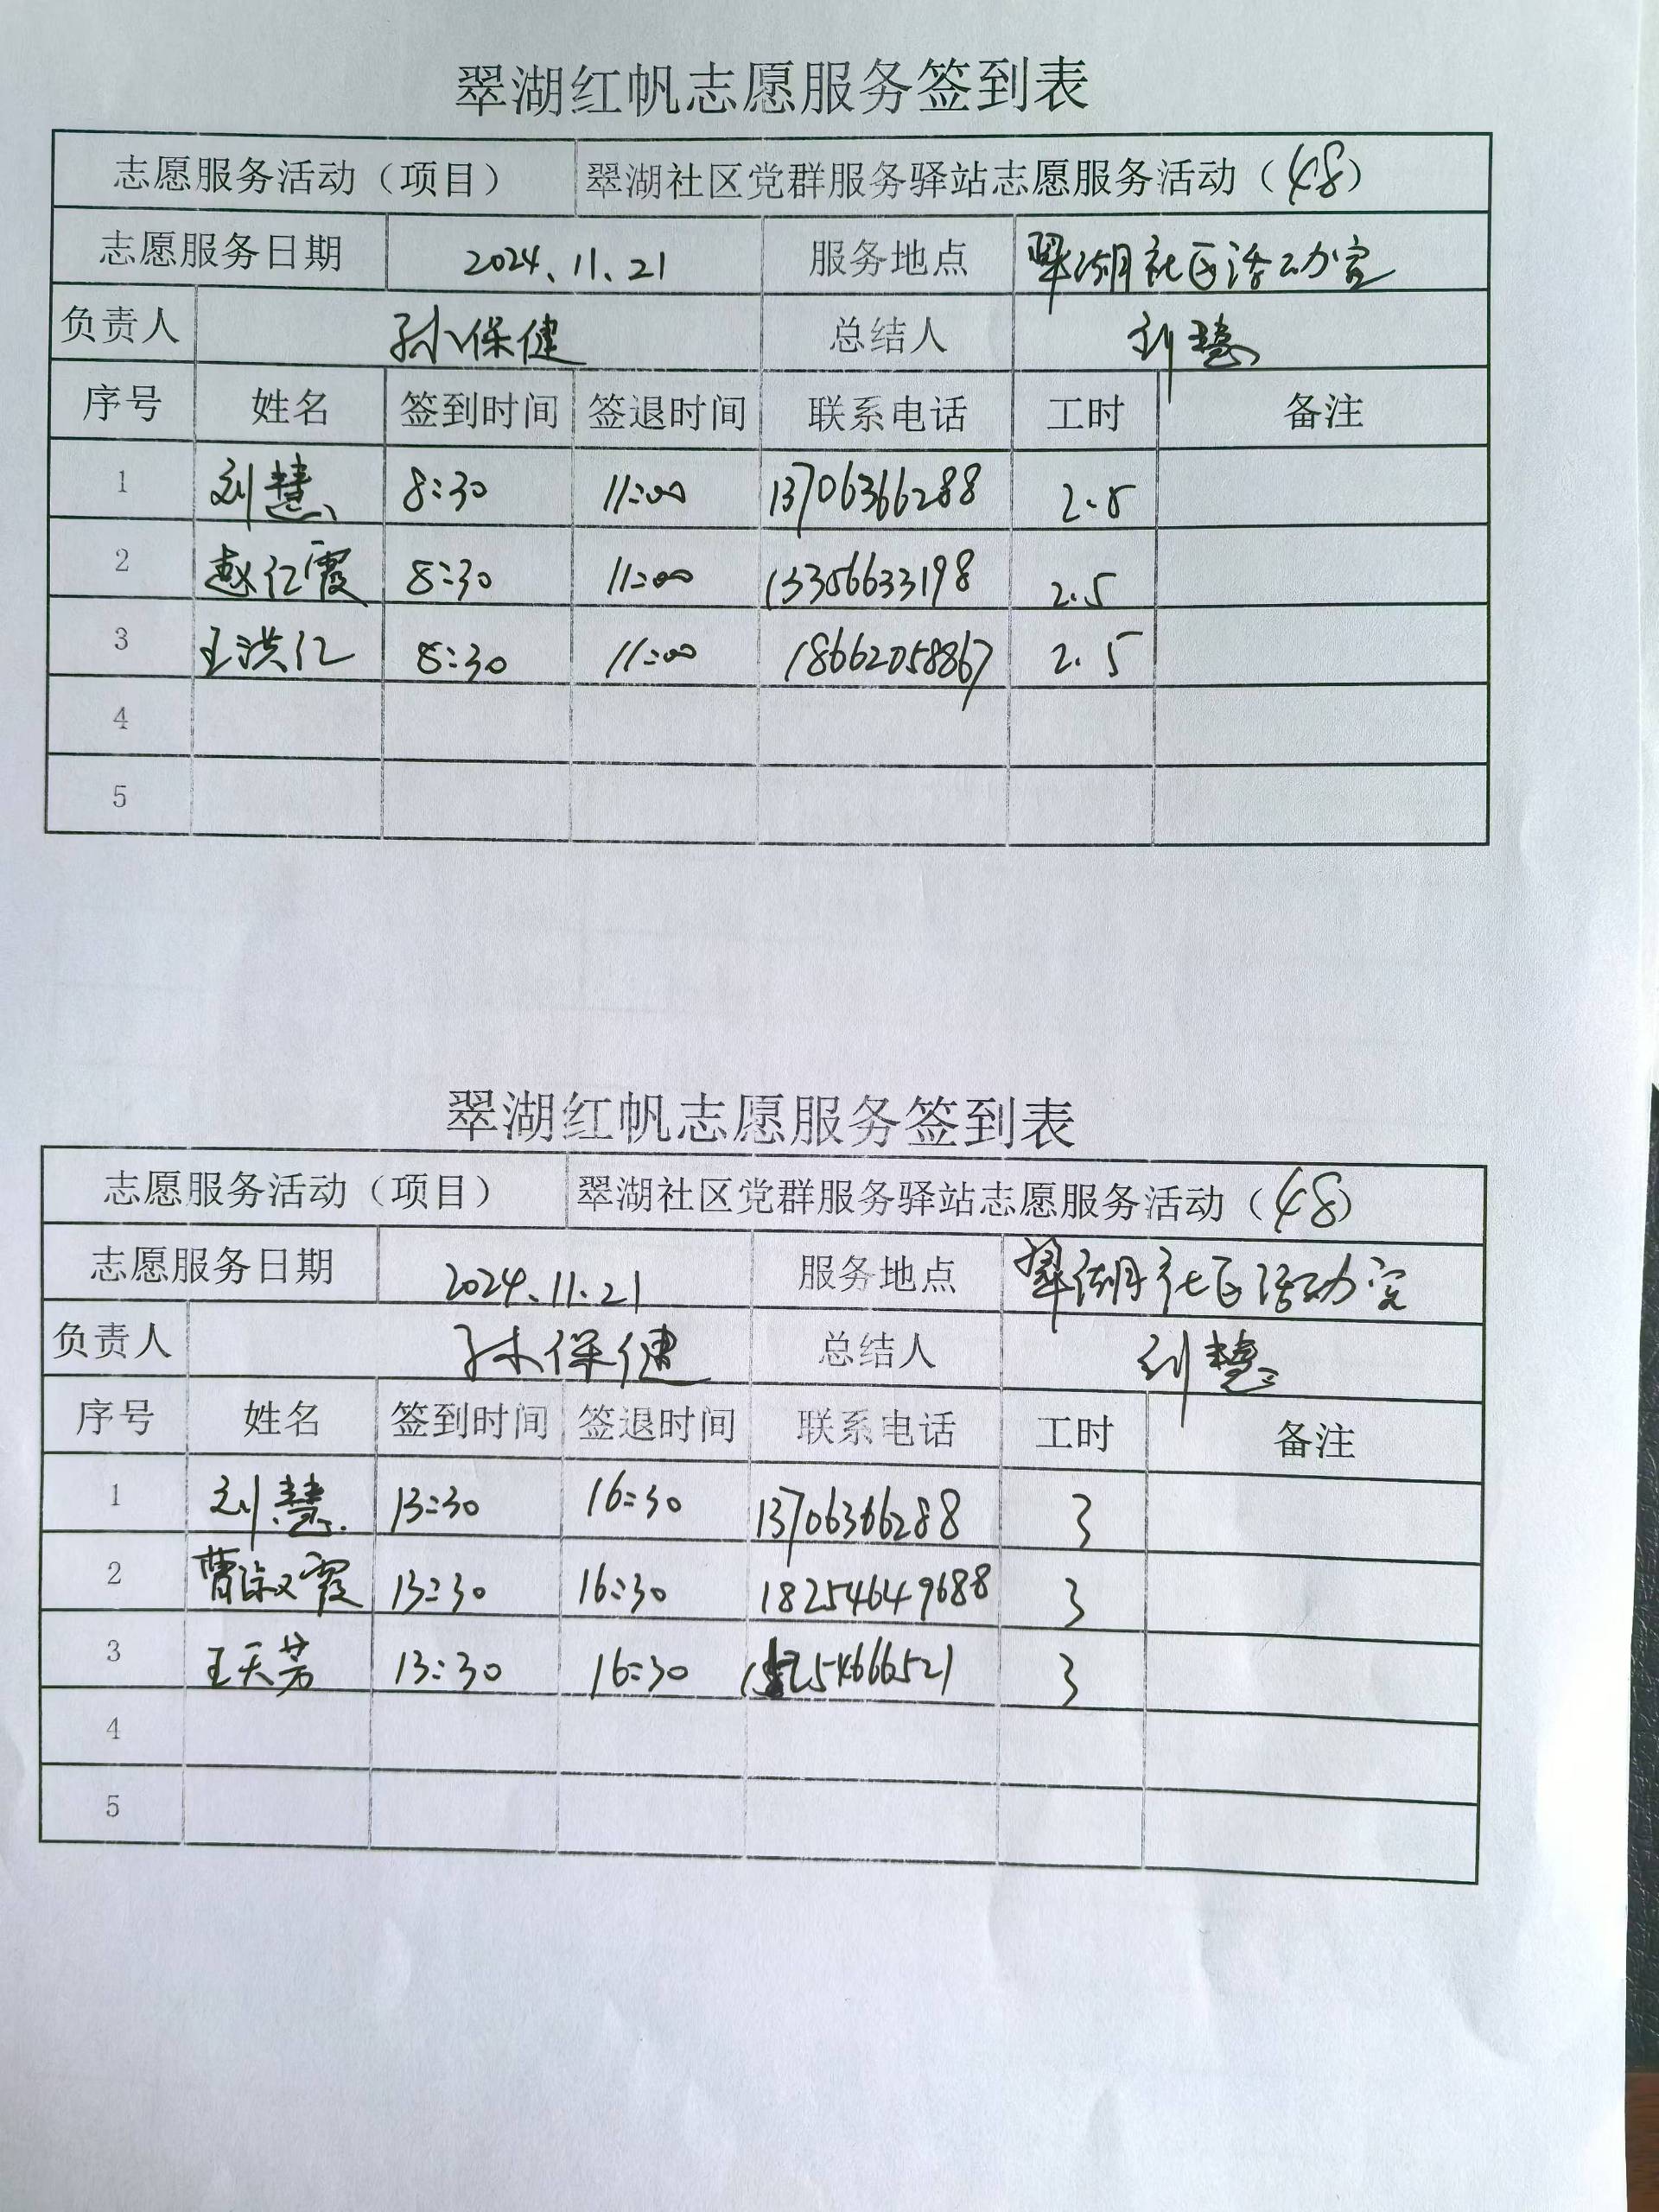 翠湖红帆志愿服务签到表
志愿服务活动（项目） 翠湖社区党群服务驿站志愿服务活动（48）
志愿服务日期 2024.11.21 服务地点 翠湖社区活动室
负责人 孙保健 总结人 刘慧
序号 姓名 签到时间 签退时间 联系电话 工时 备注
1 刘慧 8:30 11:00 13706366288 2.5
2 赵仁霞 8:30 11:00 13356633198 2.5
3 王洪仁 8:30 11:00 18662058867 2.5
4
5
翠湖红帆志愿服务签到表
志愿服务活动（项目） 翠湖社区党群服务驿站志愿服务活动（48）
志愿服务日期 2024.11.21 服务地点 翠湖社区活动室
负责人 孙保健 总结人 刘慧
序号 姓名 签到时间 签退时间 联系电话 工时 备注
1 刘慧 13:30 16:30 13706366288 3
2 曹淑霞 13:30 16:30 18254649688 3
3 王天芳 13:30 16:30 3
4
5